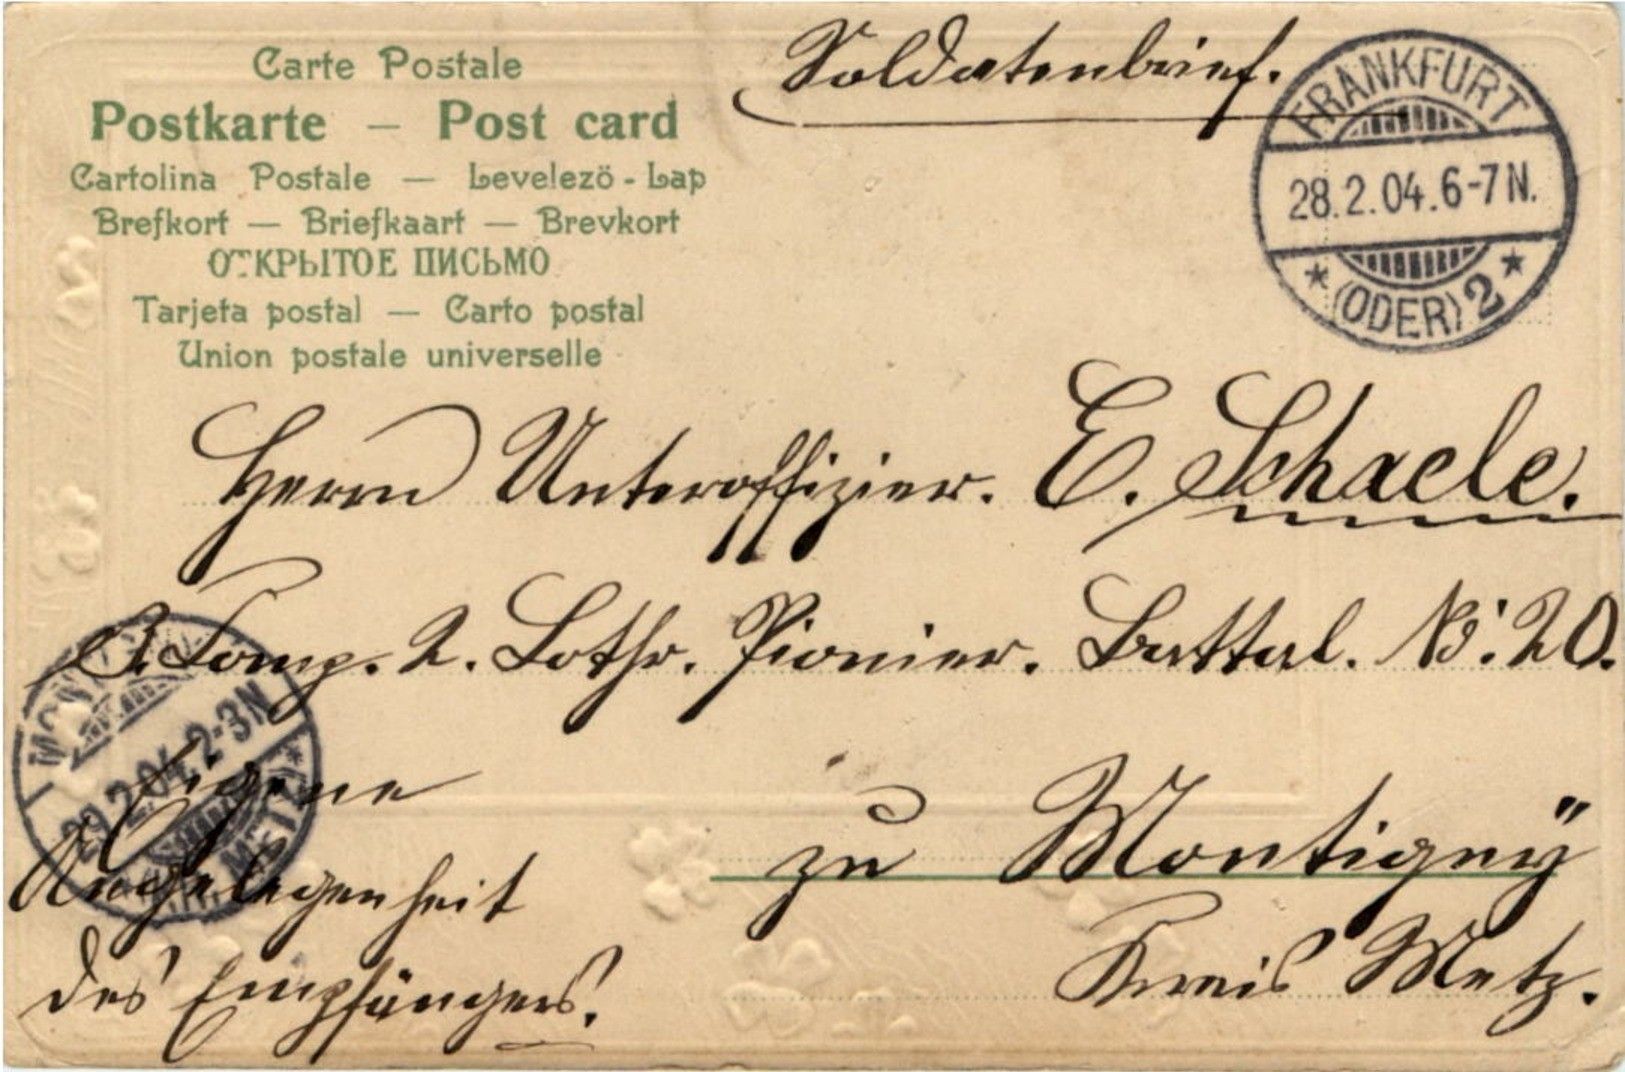 Carte Postale
Postkarte — Post card
Cartolina Postale — Levelezö-Lap
Brefkort — Briefkaart — Brevkort
ОТКРЫТОЕ ПИСЬМО
Tarjeta postal — Carto postal
Union postale universelle
Soldatenbrief.
FRANKFURT
28.2.04.6-7N.
* (ODER) 2 *
Herrn Unteroffizier. E. Schaele.
3. Comp. 2. Lothr. Pionier. Battal. No. 20.
29.2.04.2-3N
METZ
Eigene
Angelegenheit
des Empfängers.
zu Montigny
Kreis Metz.